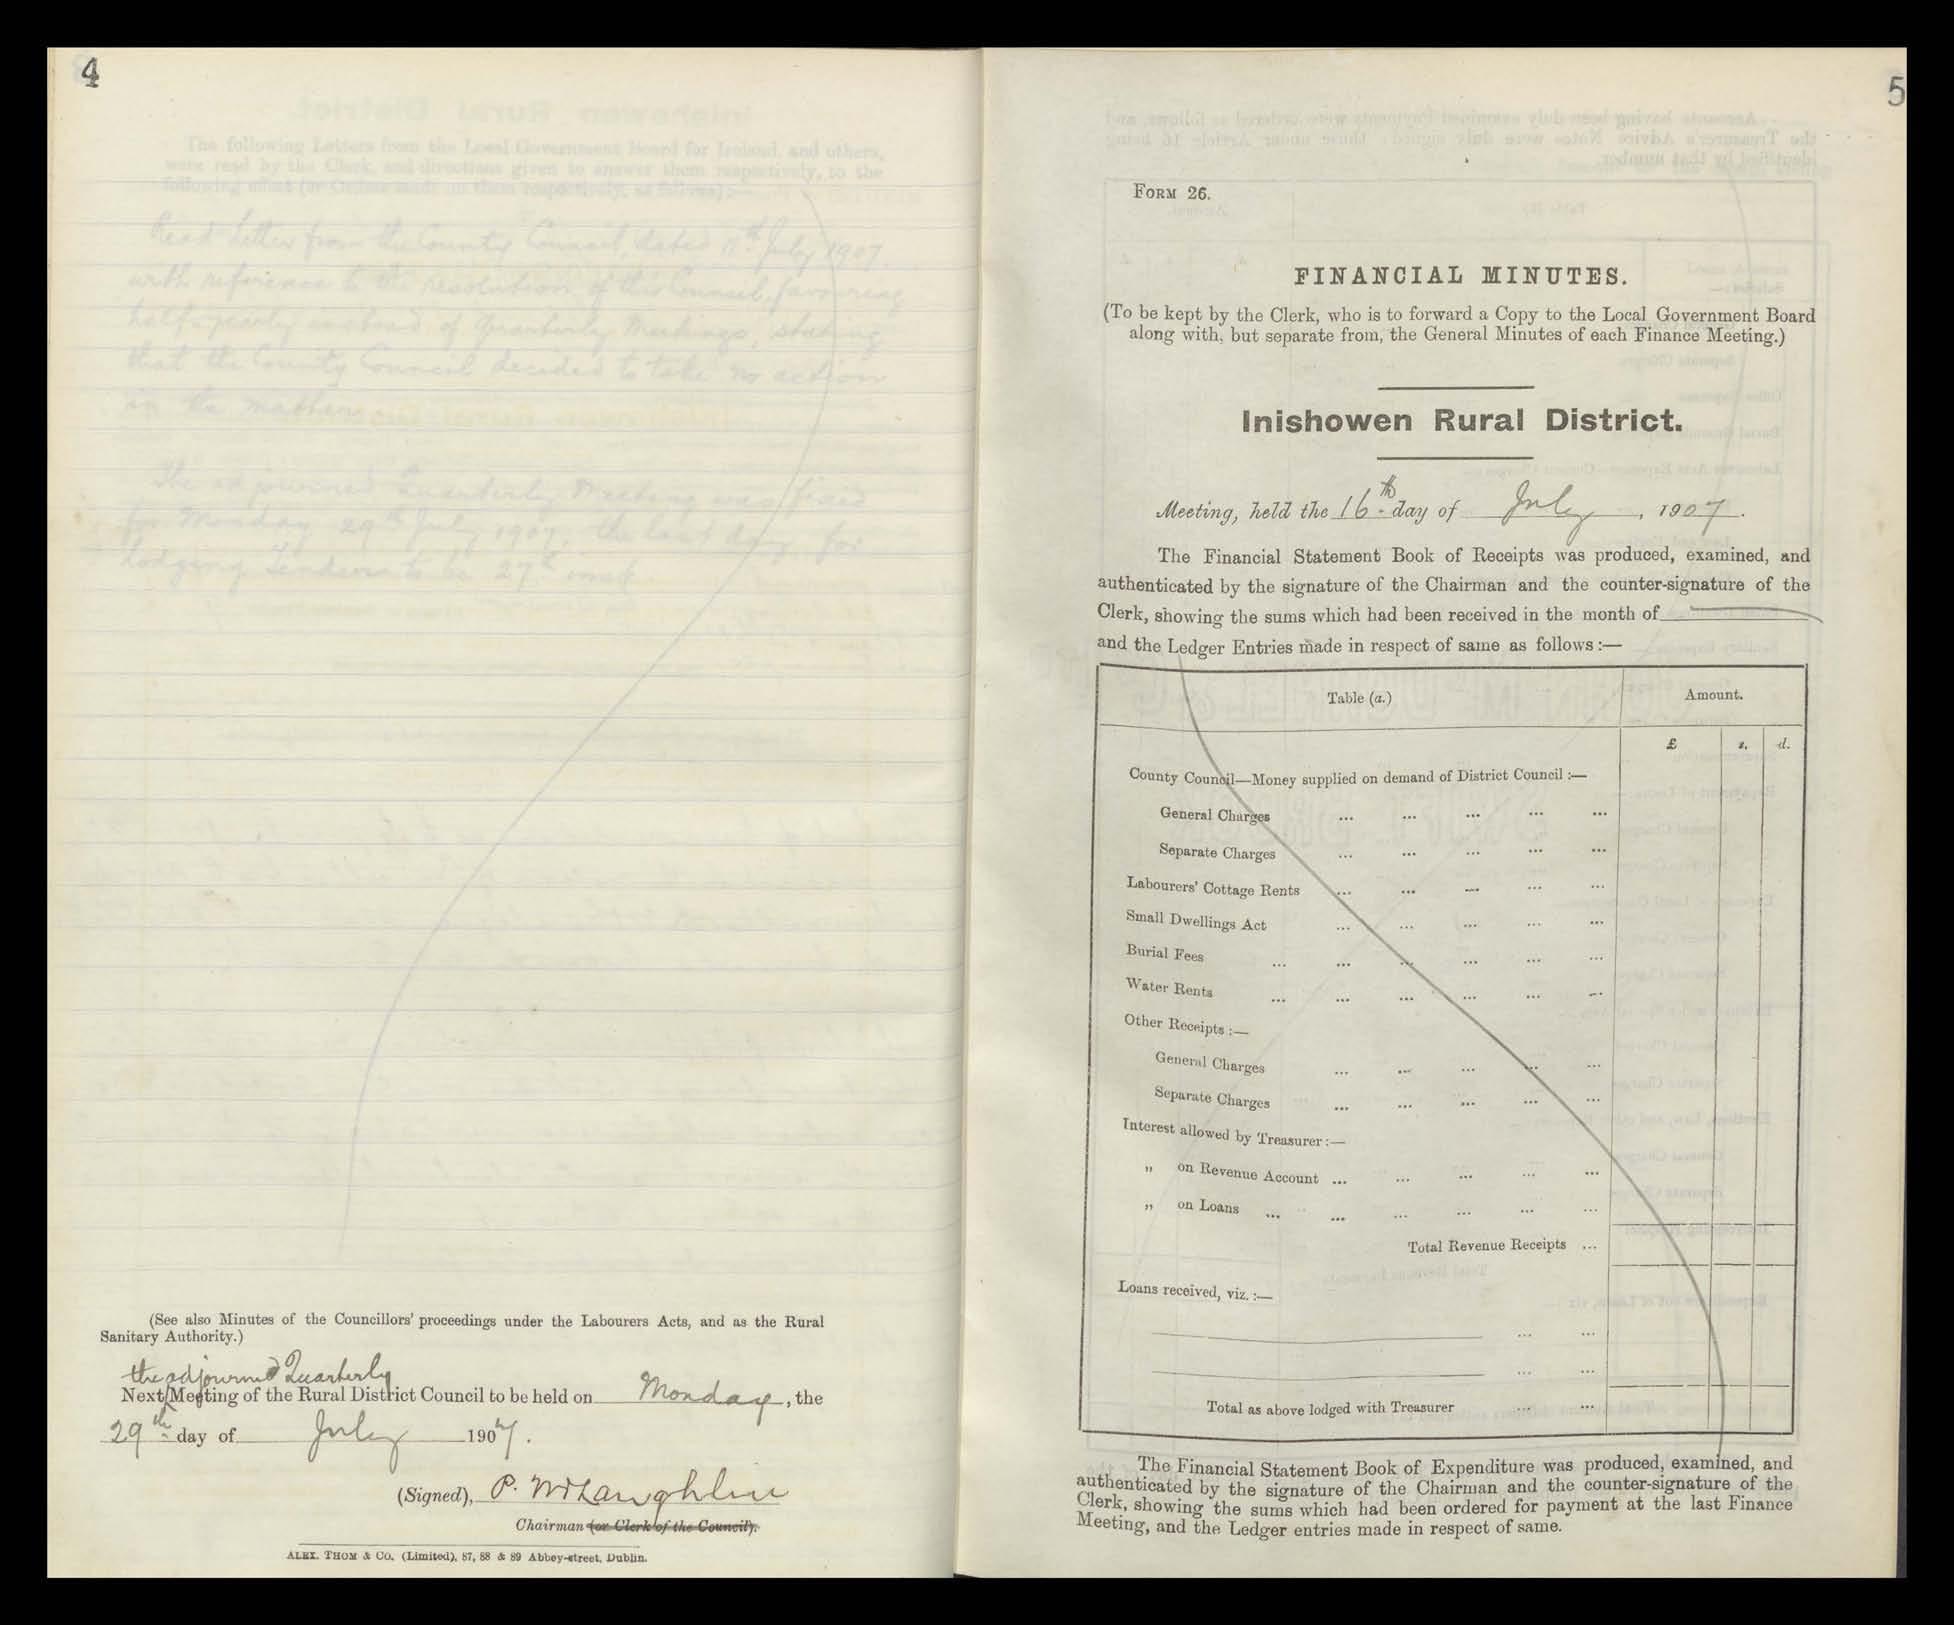 4
The following Letters from the Local Government Board for Ireland, and others,
were read by the Clerk, and directions given to answer them respectively, to the
following effect (or Orders made on them respectively, as follows) :—
Read Letter from the County Council, dated 11th July 1907
with reference to the resolution of this Council, favouring
half-yearly instead of Quarterly Meetings, stating
that the County Council decided to take no action
in the matter
The adjourned Quarterly Meeting was fixed
for Monday 29th July 1907, the last day for
lodging Tenders to be 27th inst
(See also Minutes of the Councillors' proceedings under the Labourers Acts, and as the Rural
Sanitary Authority.)
the adjourned Quarterly
Next Meeting of the Rural District Council to be held on Monday, the
29th day of July 1907.
(Signed), P. McLaughlin
Chairman (or Clerk of the Council).
ALEX. THOM & CO. (Limited), 87, 88 & 89 Abbey-street, Dublin.
5
FORM 26.
FINANCIAL MINUTES.
(To be kept by the Clerk, who is to forward a Copy to the Local Government Board
along with, but separate from, the General Minutes of each Finance Meeting.)
Inishowen Rural District.
Meeting, held the 16th day of July, 1907.
The Financial Statement Book of Receipts was produced, examined, and
authenticated by the signature of the Chairman and the counter-signature of the
Clerk, showing the sums which had been received in the month of
and the Ledger Entries made in respect of same as follows :—
Table (a.) Amount.
£ s. d.
County Council—Money supplied on demand of District Council :—
General Charges ... ... ... ... ...
Separate Charges ... ... ... ... ...
Labourers' Cottage Rents ... ... ... ... ...
Small Dwellings Act ... ... ... ... ...
Burial Fees ... ... ... ... ... ...
Water Rents ... ... ... ... ... ...
Other Receipts :—
General Charges ... ... ... ... ...
Separate Charges ... ... ... ... ...
Interest allowed by Treasurer :—
„ on Revenue Account ... ... ... ... ...
„ on Loans ... ... ... ... ... ...
Total Revenue Receipts ...
Loans received, viz. :—
... ...
... ...
Total as above lodged with Treasurer ... ...
The Financial Statement Book of Expenditure was produced, examined, and
authenticated by the signature of the Chairman and the counter-signature of the
Clerk, showing the sums which had been ordered for payment at the last Finance
Meeting, and the Ledger entries made in respect of same.